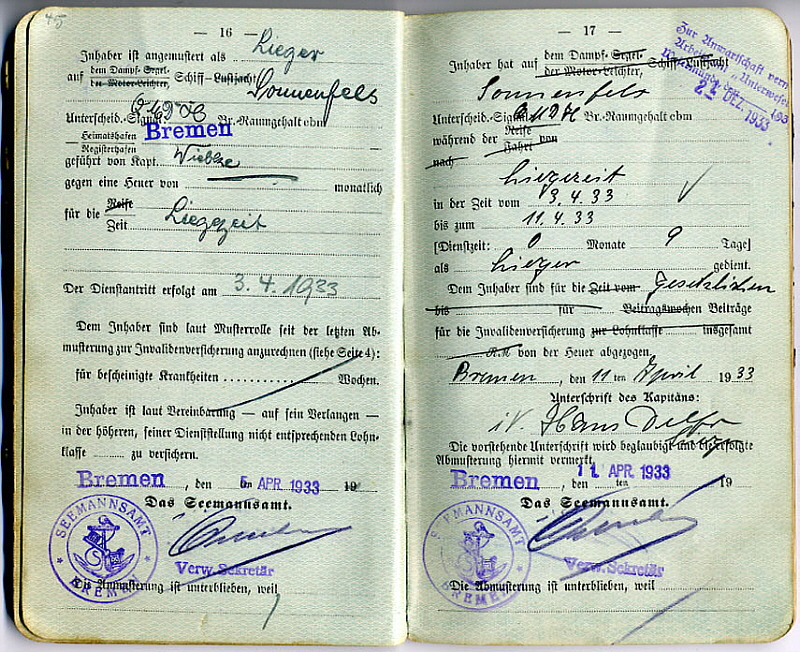 45
— 16 —
Inhaber ist angemustert als Lieger
auf dem Dampf- Segel-
der Motor-Leichter, Schiff-Lustjacht Sonnenfels
Unterscheid.-Sign. QMDC Br.-Raumgehalt cbm
Heimatshafen Bremen
Registerhafen
geführt von Kapt. Wiebke
gegen eine Heuer von monatlich
für die Reise
Zeit Liegezeit
Der Dienstantritt erfolgt am 3.4.1933
Dem Inhaber sind laut Musterrolle seit der letzten Ab-
musterung zur Invalidenversicherung anzurechnen (siehe Seite 4):
für bescheinigte Krankheiten .......... Wochen.
Inhaber ist laut Vereinbarung — auf sein Verlangen —
in der höheren, seiner Dienststellung nicht entsprechenden Lohn-
klasse ......... zu versichern.
Bremen, den 5. APR. 1933 19
Das Seemannsamt.
SEEMANNSAMT
BREMEN
Verw. Sekretär
Die Abmusterung ist unterblieben, weil
— 17 —
Zur Anwartschaft verm
Arbeits "Unterweser"
22. DEZ. 1933
Inhaber hat auf dem Dampf- Segel-
der Motor-Leichter, Schiff-Lustjacht
Sonnenfels
Unterscheid.-Sign. QMDC Br.-Raumgehalt cbm
während der Reise
Fahrt von
nach
Liegezeit
in der Zeit vom 3.4.33
bis zum 11.4.33
[Dienstzeit: 0 Monate 9 Tage]
als Lieger gedient.
Dem Inhaber sind für die Zeit vom Gesetzlichen
bis für Beitragswochen Beiträge
für die Invalidenversicherung zur Lohnklasse insgesamt
RM von der Heuer abgezogen.
Bremen, den 11 ten April 1933
Unterschrift des Kapitäns:
i.V. Hans
Die vorstehende Unterschrift wird beglaubigt und die erfolgte
Abmusterung hiermit vermerkt.
Bremen, den 11. APR. 1933 ten 19
Das Seemannsamt.
SEEMANNSAMT
BREMEN
Verw. Sekretär
Die Abmusterung ist unterblieben, weil